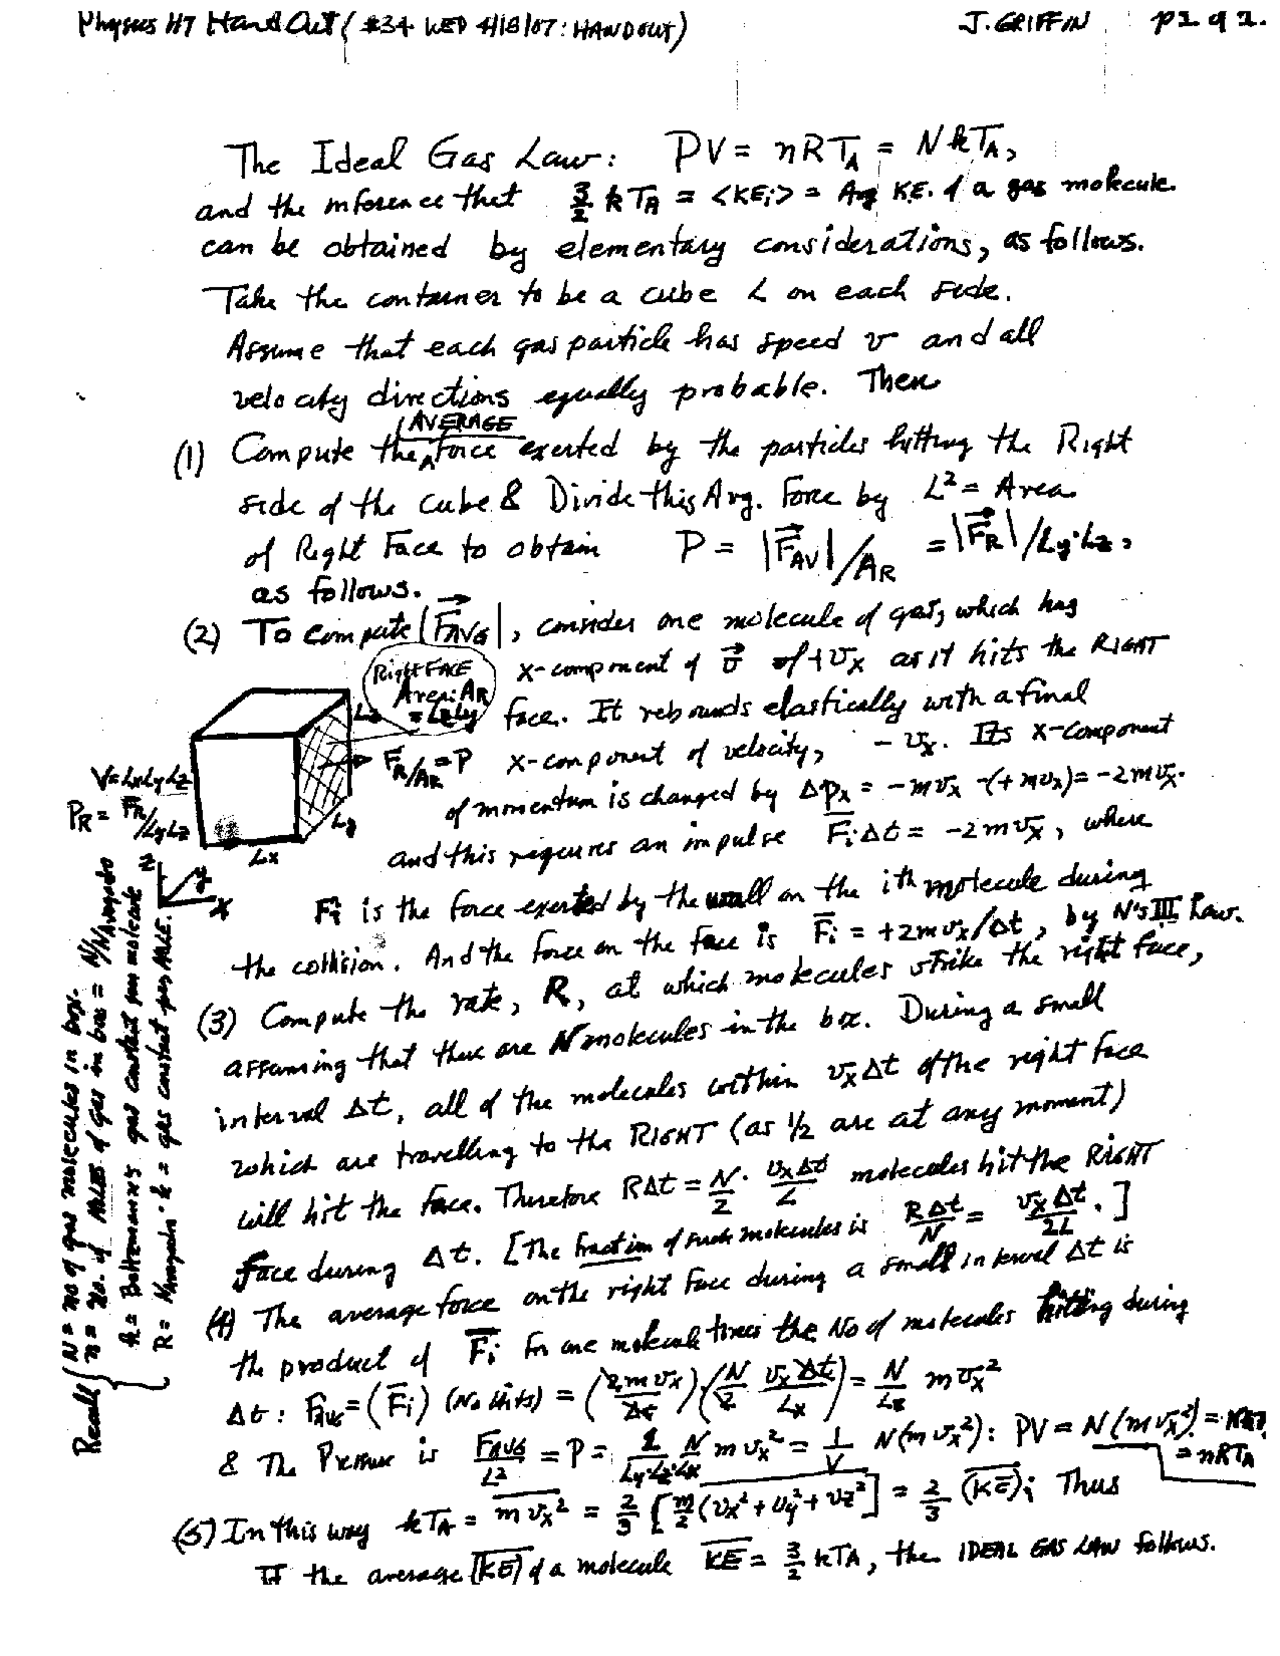 Physics 117 HandOut (#34 WED 4/18/07: HANDOUT) J. GRIFFIN p1 of 1.
The Ideal Gas Law: PV = nRT_A = NkT_A,
and the inference that 3/2 kT_A = <KE_i> = Avg K.E. of a gas molecule.
can be obtained by elementary considerations, as follows.
Take the container to be a cube L on each side.
Assume that each gas particle has speed v and all
velocity directions equally probable. Then
AVERAGE
(1) Compute the force exerted by the particles hitting the Right
side of the cube & Divide this Avg. Force by L² = Area
of Right Face to obtain P = |F_AV|/A_R = |F_R|/Ly·Lz,
as follows.
(2) To compute |F_AVG|, consider one molecule of gas, which has
x-component of v of +v_x as it hits the RIGHT
face. It rebounds elastically with a final
x-component of velocity, -v_x. Its x-component
of momentum is changed by Δp_x = -mv_x -(+mv_x) = -2mv_x.
and this requires an impulse F_i Δt = -2mv_x, where
Right FACE
Area: A_R
= LzLy
Lz
F_R/A_R = P
V = LxLyLz
P_R = F_R/LyLz
Ly
Lx
z
y
x
F_i is the force exerted by the wall on the ith molecule during
the collision. And the force on the face is F_i = +2mv_x/Δt, by N's III Law.
(3) Compute the rate, R, at which molecules strike the right face,
assuming that there are N molecules in the box. During a small
interval Δt, all of the molecules within v_xΔt of the right face
which are travelling to the RIGHT (as 1/2 are at any moment)
will hit the face. Therefore RΔt = N/2 · v_xΔt/L molecules hit the RIGHT
face during Δt. [The fraction of such molecules is RΔt/N = v_xΔt/2L.]
(4) The average force on the right Face during a small interval Δt is
the product of F_i for one molecule times the No of molecules hitting during
Δt: F_AVG = (F_i) (No hits) = (2mv_x/Δt)(N/2 v_xΔt/Lx) = N/Lx mv_x²
& The Pressure is F_AVG/L² = P = 1/Ly·Lz·Lx N mv_x² = 1/V N(mv_x²): PV = N(mv_x²) = NkT
= nRT_A
(5) In this way kT_A = mv_x² = 2/3 [m/2 (v_x² + v_y² + v_z²)] = 2/3 (KE); Thus
If the average (KE) of a molecule KE = 3/2 kT_A, the IDEAL GAS LAW follows.
Recall
N = no of gas molecules in box.
n = no. of MOLES of gas in box = N/N_Avogadro
k = Boltzmann's gas constant per molecule
R = N_Avogadro·k = gas constant per MOLE.